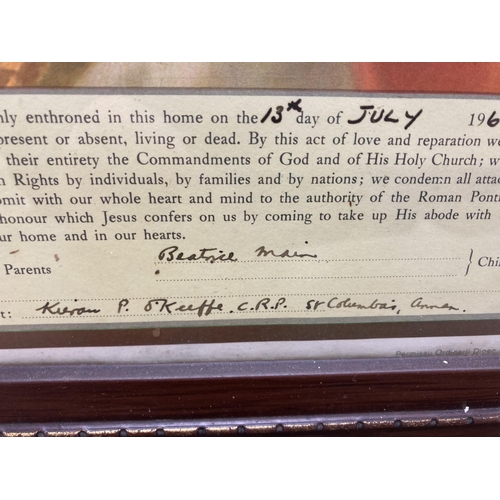 nly enthroned in this home on the 13th day of JULY 196
present or absent, living or dead. By this act of love and reparation we
their entirety the Commandments of God and of His Holy Church; w
n Rights by individuals, by families and by nations; we condemn all attac
omit with our whole heart and mind to the authority of the Roman Ponti
honour which Jesus confers on us by coming to take up His abode with
ur home and in our hearts.
Parents Beatrice Main } Chi
t: Kieran P. O'Keeffe. C.R.P. St Columba's, Annan.